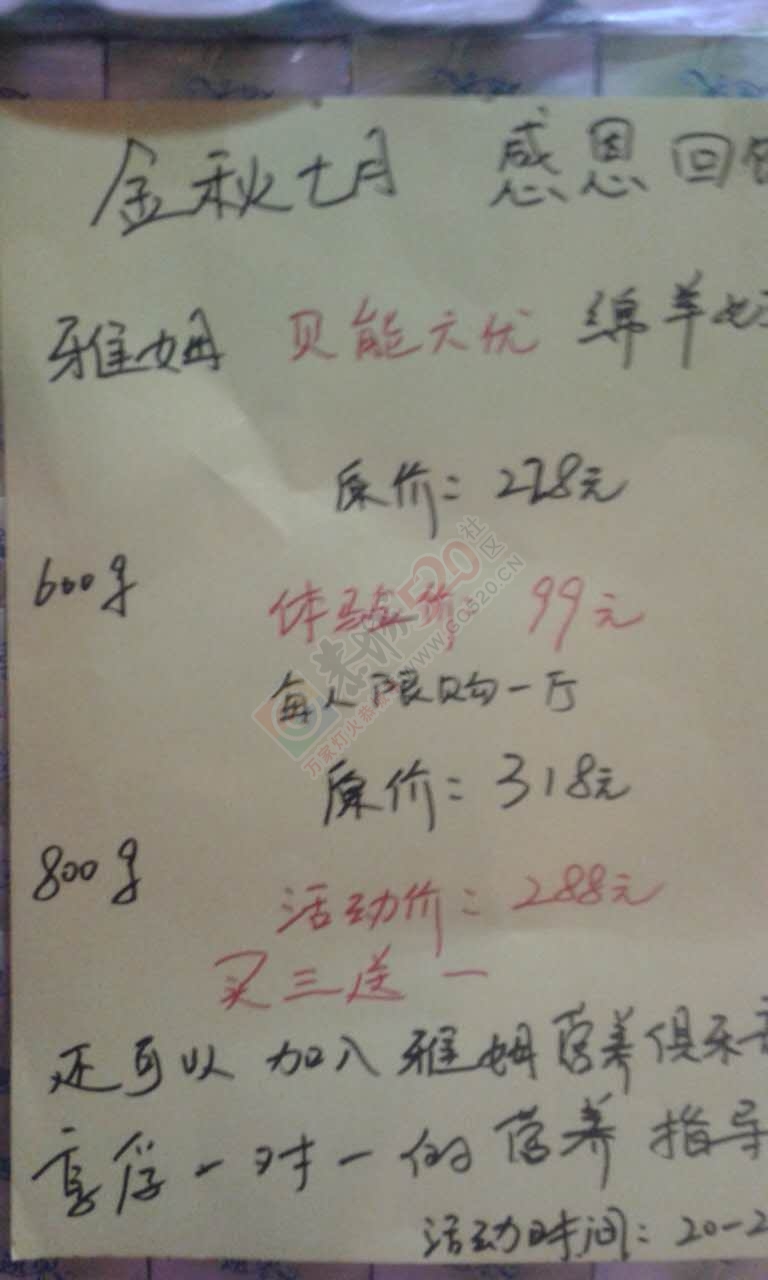 金秋七月 感恩回
雅姆 贝能六优 绵羊
原价：278元
600g
体验价：99元
每人限购一厅
原价：318元
800g
活动价：288元
买三送一
还可以加入雅姆营养俱乐
享受一对一的营养指导
活动时间：20-2
恭城520社区
WWW.GC520.CN
万家灯火恭城